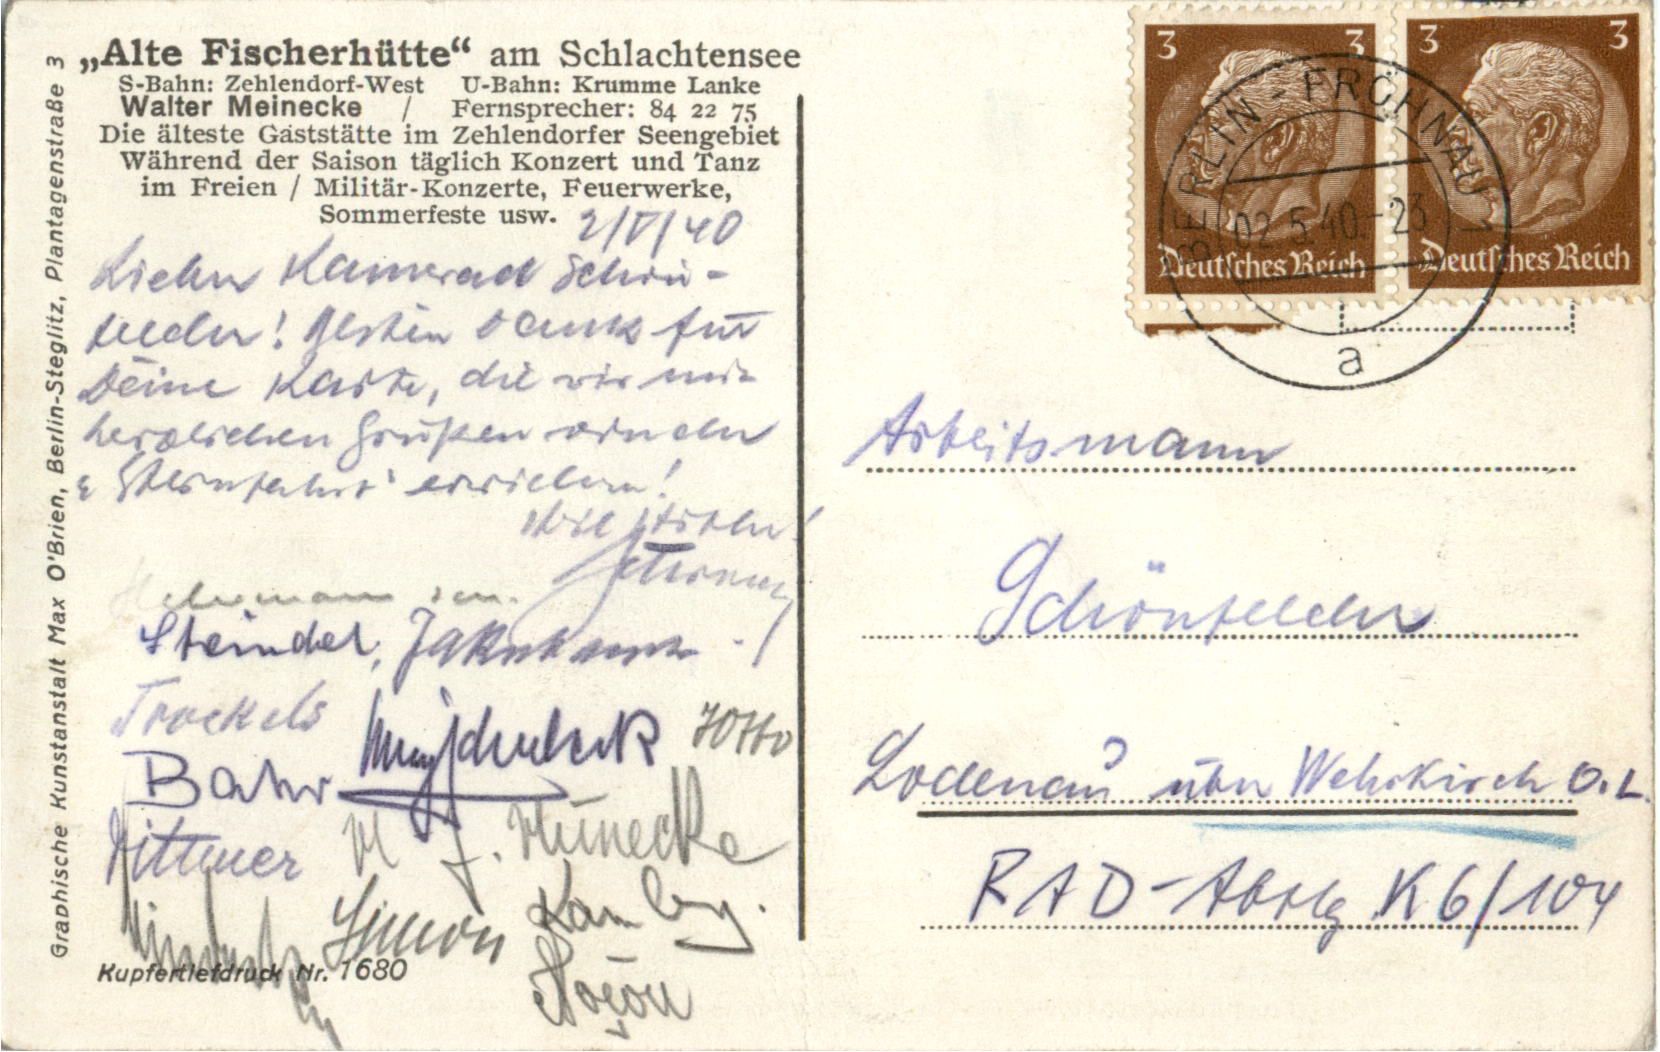 „Alte Fischerhütte“ am Schlachtensee
S-Bahn: Zehlendorf-West U-Bahn: Krumme Lanke
Walter Meinecke / Fernsprecher: 84 22 75
Die älteste Gaststätte im Zehlendorfer Seengebiet
Während der Saison täglich Konzert und Tanz
im Freien / Militär-Konzerte, Feuerwerke,
Sommerfeste usw.
2/V/40
Lieber Kamerad Schön-
felder! Besten Dank für
Deine Karte, die wir mit
herzlichen Grüßen von der
"Sternfahrt" erwidern!
Steindel,
Trockels
Bahr
Otto
Dittmer
Simon
Graphische Kunstanstalt Max O'Brien, Berlin-Steglitz, Plantagenstraße 3
Kupfertiefdruck Nr. 1680
3 3
Deutsches Reich
3 3
Deutsches Reich
BERLIN-FROHNAU 1
02.5.40.-23
a
Arbeitsmann
Schönfelder
Lodenau über Wehrkirch O.L.
RAD-Abtlg. K6/104